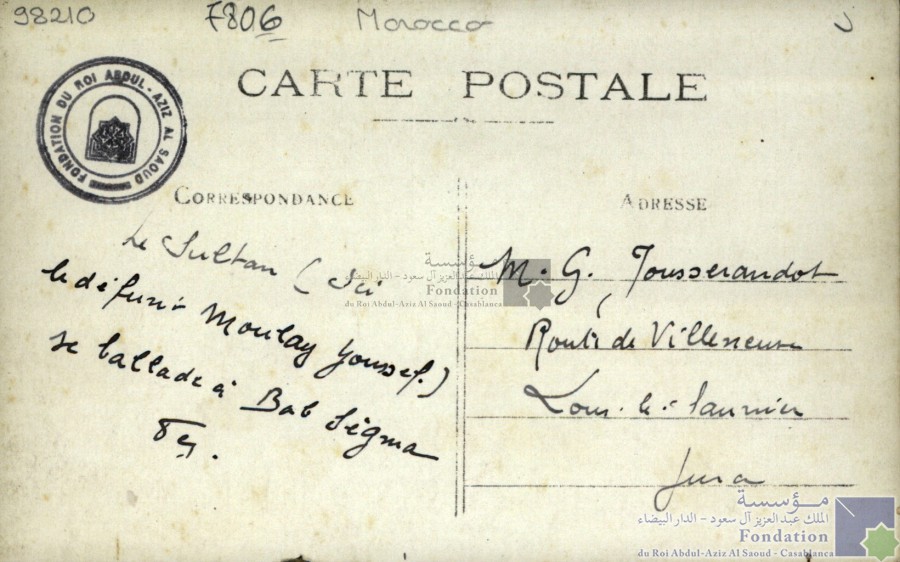 98210 F806 Morocco
CARTE POSTALE
FONDATION DU ROI ABDUL-AZIZ AL SAOUD
CORRESPONDANCE
ADRESSE
Le Sultan (Ici
le défunt Moulay Youssef.)
se ballade à Bab Segma
M. G. Jousserandot
Route de Villeneuve
Lons-le-Saunier
Jura
مؤسسة
الملك عبد العزيز آل سعود - الدار البيضاء
Fondation
du Roi Abdul-Aziz Al Saoud - Casablanca
مؤسسة
الملك عبد العزيز آل سعود - الدار البيضاء
Fondation
du Roi Abdul-Aziz Al Saoud - Casablanca